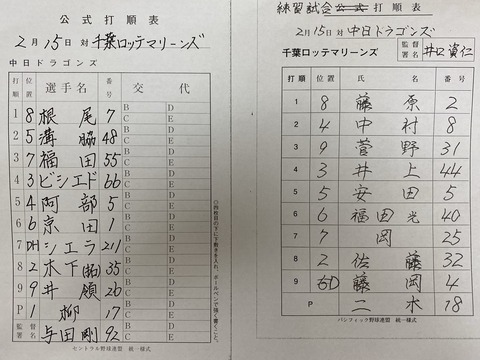 公式打順表
2月15日 対 千葉ロッテマリーンズ
中日ドラゴンズ
打順 位置 選手名 番号 交代
1 8 根尾 7 B D C E
2 5 溝脇 48 B D C E
3 7 福田 55 B D C E
4 3 ビシエド 66 B D C E
5 4 阿部 5 B D C E
6 6 京田 1 B D C E
7 DH シエラ 211 B D C E
8 2 木下(拓) 35 B D C E
9 9 井領 26 B D C E
P 1 柳 17 B D C E
監督署名 与田剛 92
セントラル野球連盟 統一様式
練習試合 公式 打順表
2月15日 対 中日ドラゴンズ
千葉ロッテマリーンズ 監督署名 井口資仁
打順 位置 氏名 番号
1 8 藤原 2
2 4 中村 8
3 9 菅野 31
4 3 井上 44
5 5 安田 5
6 6 福田光 40
7 7 岡 25
8 2 佐藤 32
9 D 藤岡 4
P 二木 18
パシフィック野球連盟 統一様式